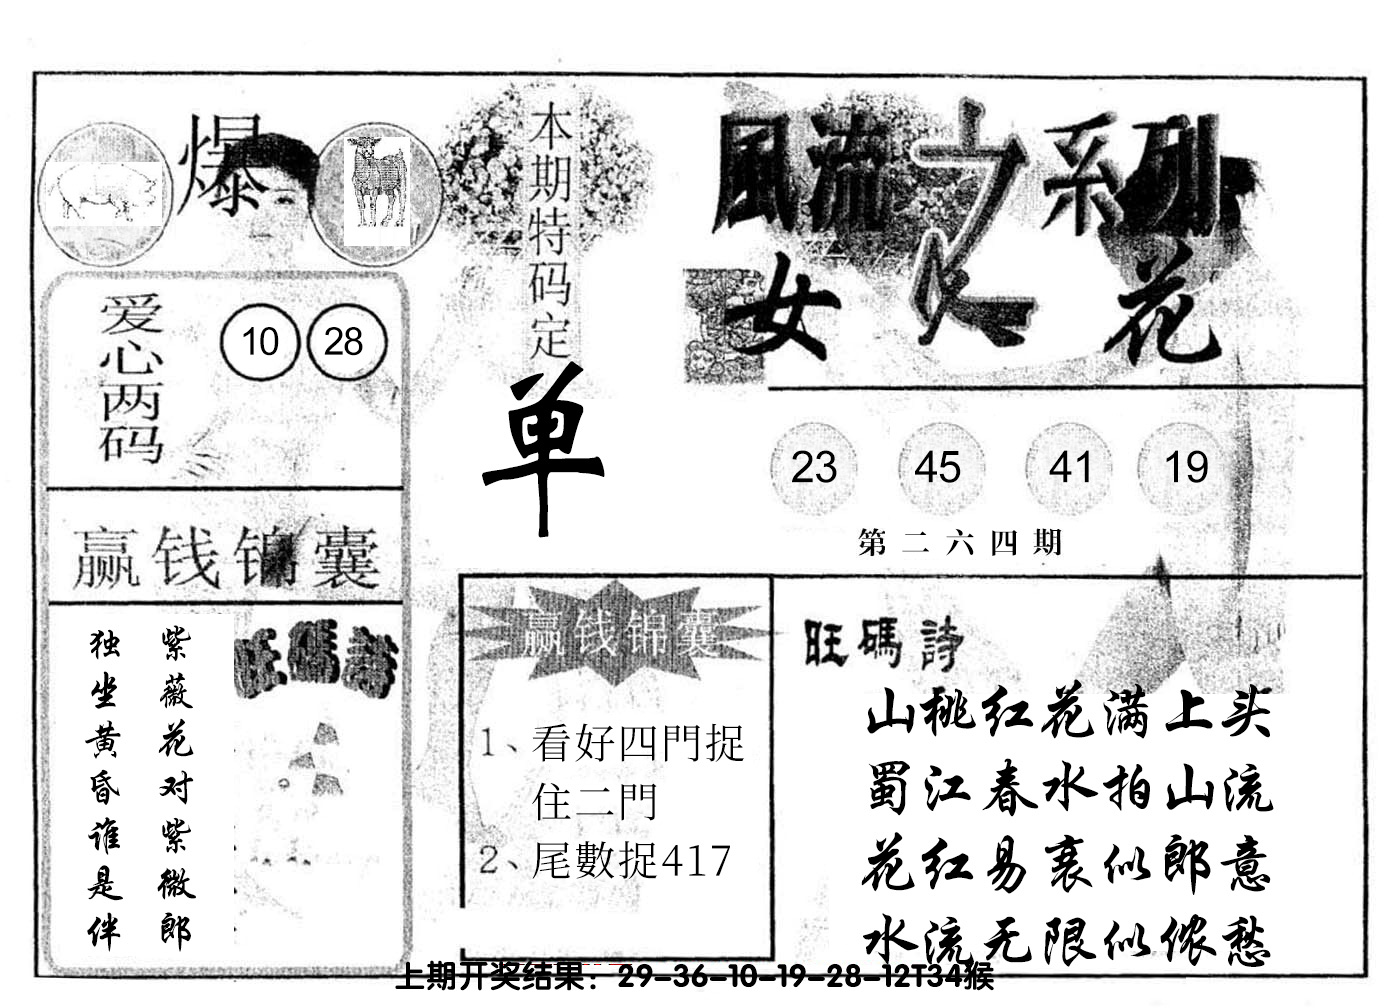 爆
本期特码定
单
風流之系列
女人花
爱心两码
10 28
23 45 41 19
第二六四期
赢钱锦囊
独坐黄昏谁是伴
紫薇花对紫微郎
旺碼詩
赢钱锦囊
1、看好四門捉
住二門
2、尾數捉417
旺碼詩
山桃红花满上头
蜀江春水拍山流
花红易衰似郎意
水流无限似侬愁
上期开奖结果：29-36-10-19-28-12T34猴